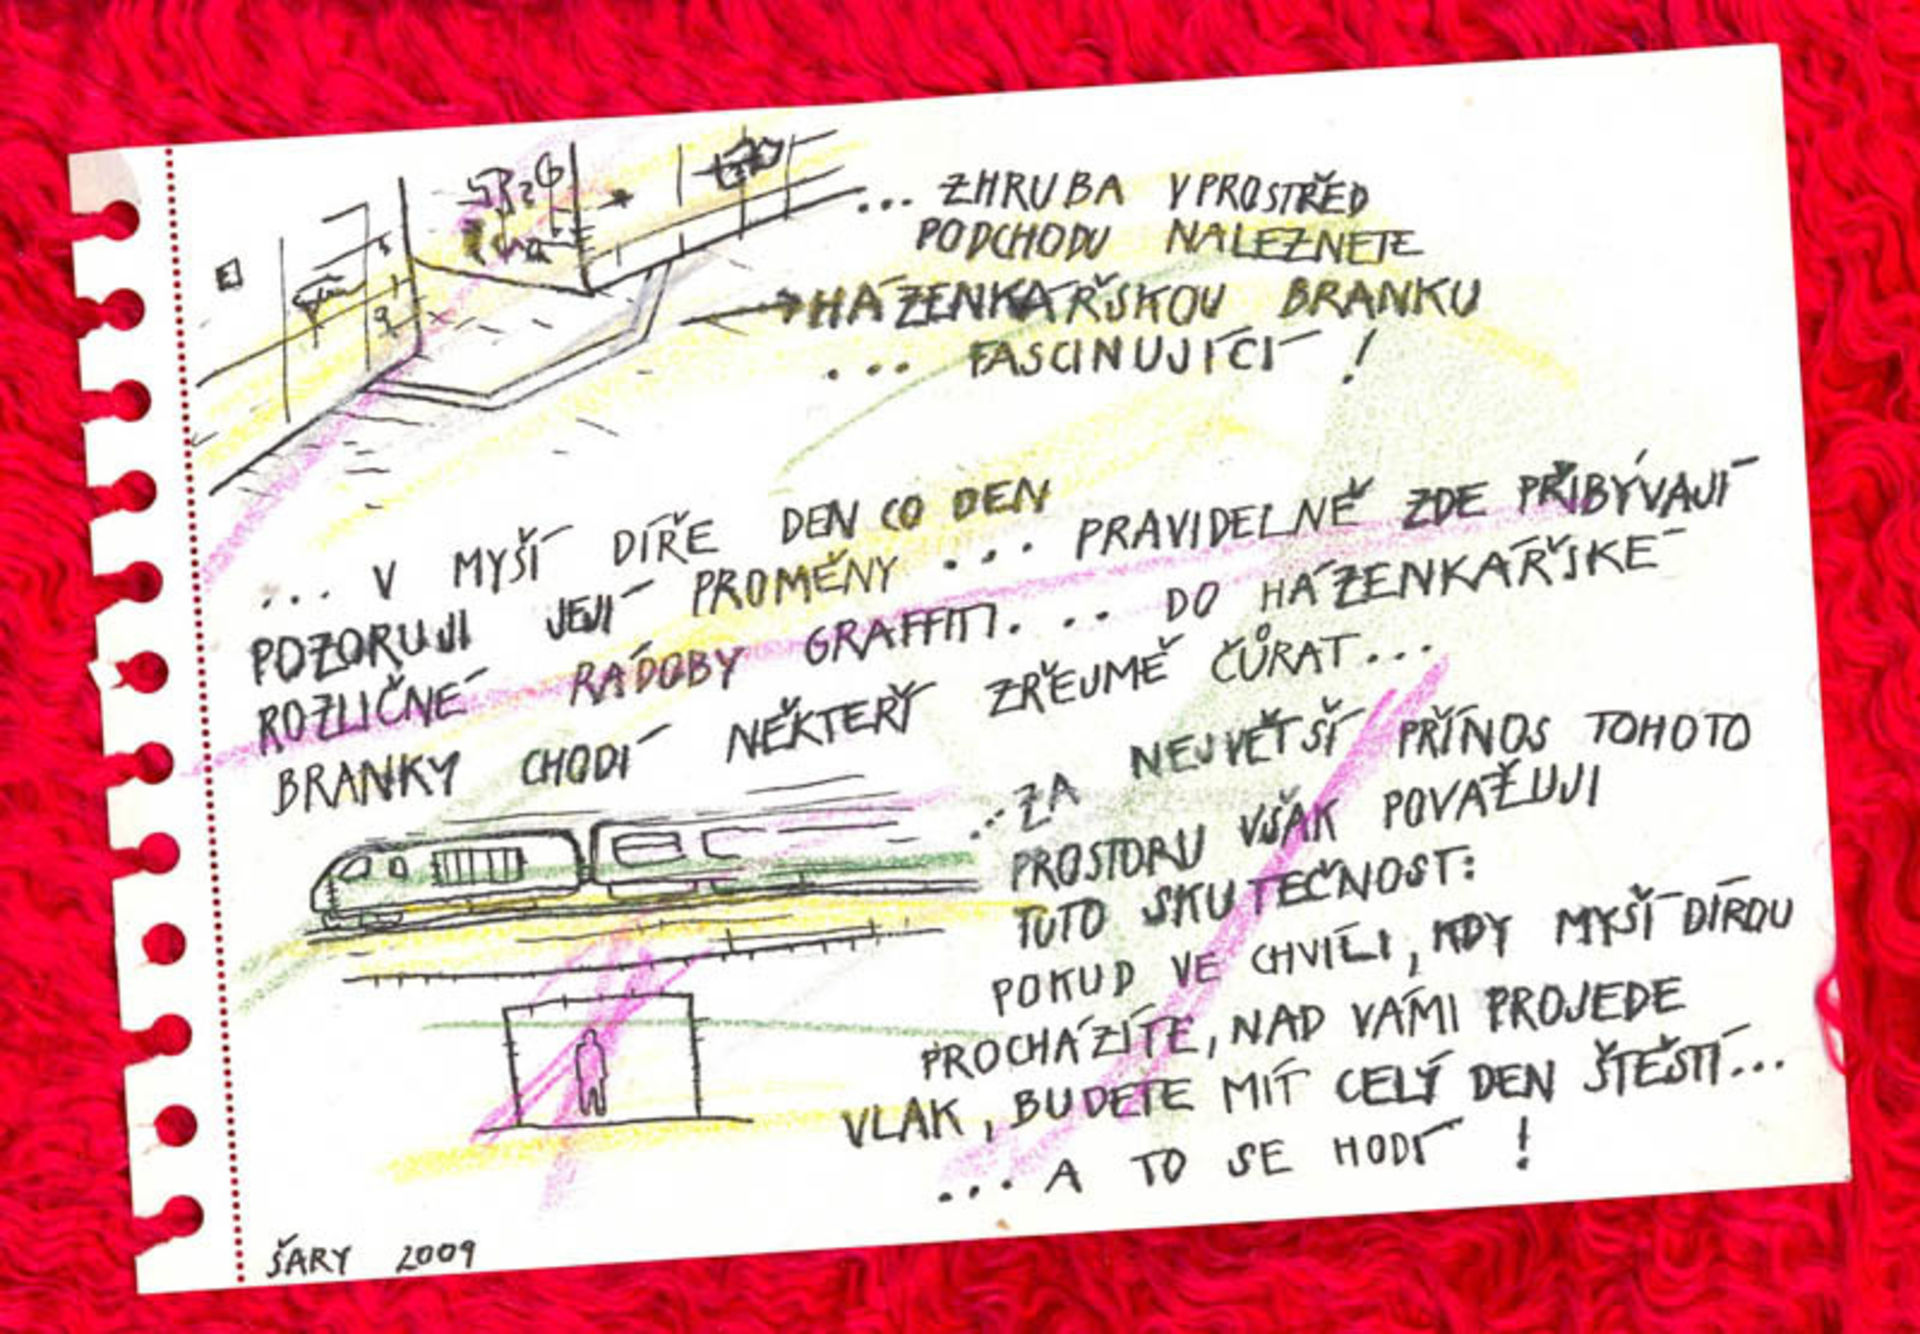 ... ZHRUBA VPROSTŘED
PODCHODU NALEZNETE
HÁZENKÁŘSKOU BRANKU
... FASCINUJÍCÍ !
... V MYŠÍ DÍŘE DEN CO DEN
POZORUJI JEJÍ PROMĚNY ... PRAVIDELNĚ ZDE PŘIBÝVAJÍ
ROZLIČNÉ RÁDOBY GRAFFITI... DO HÁZENKÁŘSKÉ
BRANKY CHODÍ NĚKTEŘÍ ZŘEJMĚ ČŮRAT...
...ZA NEJVĚTŠÍ PŘÍNOS TOHOTO
PROSTORU VŠAK POVAŽUJI
TUTO SKUTEČNOST:
POKUD VE CHVÍLI, KDY MYŠÍ DÍROU
PROCHÁZÍTE, NAD VÁMI PROJEDE
VLAK, BUDETE MÍT CELÝ DEN ŠTĚSTÍ...
... A TO SE HODÍ !
ŠARY 2009